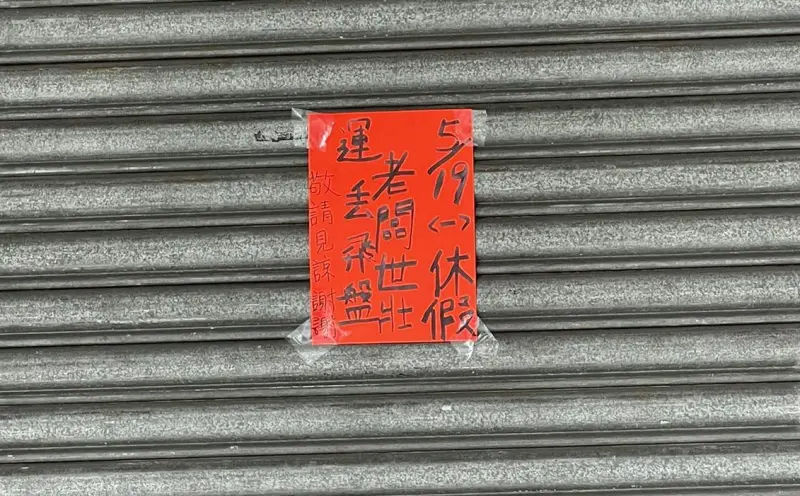 5/19<一>休假
老闆世壯
運丟飛盤
敬請見諒謝謝